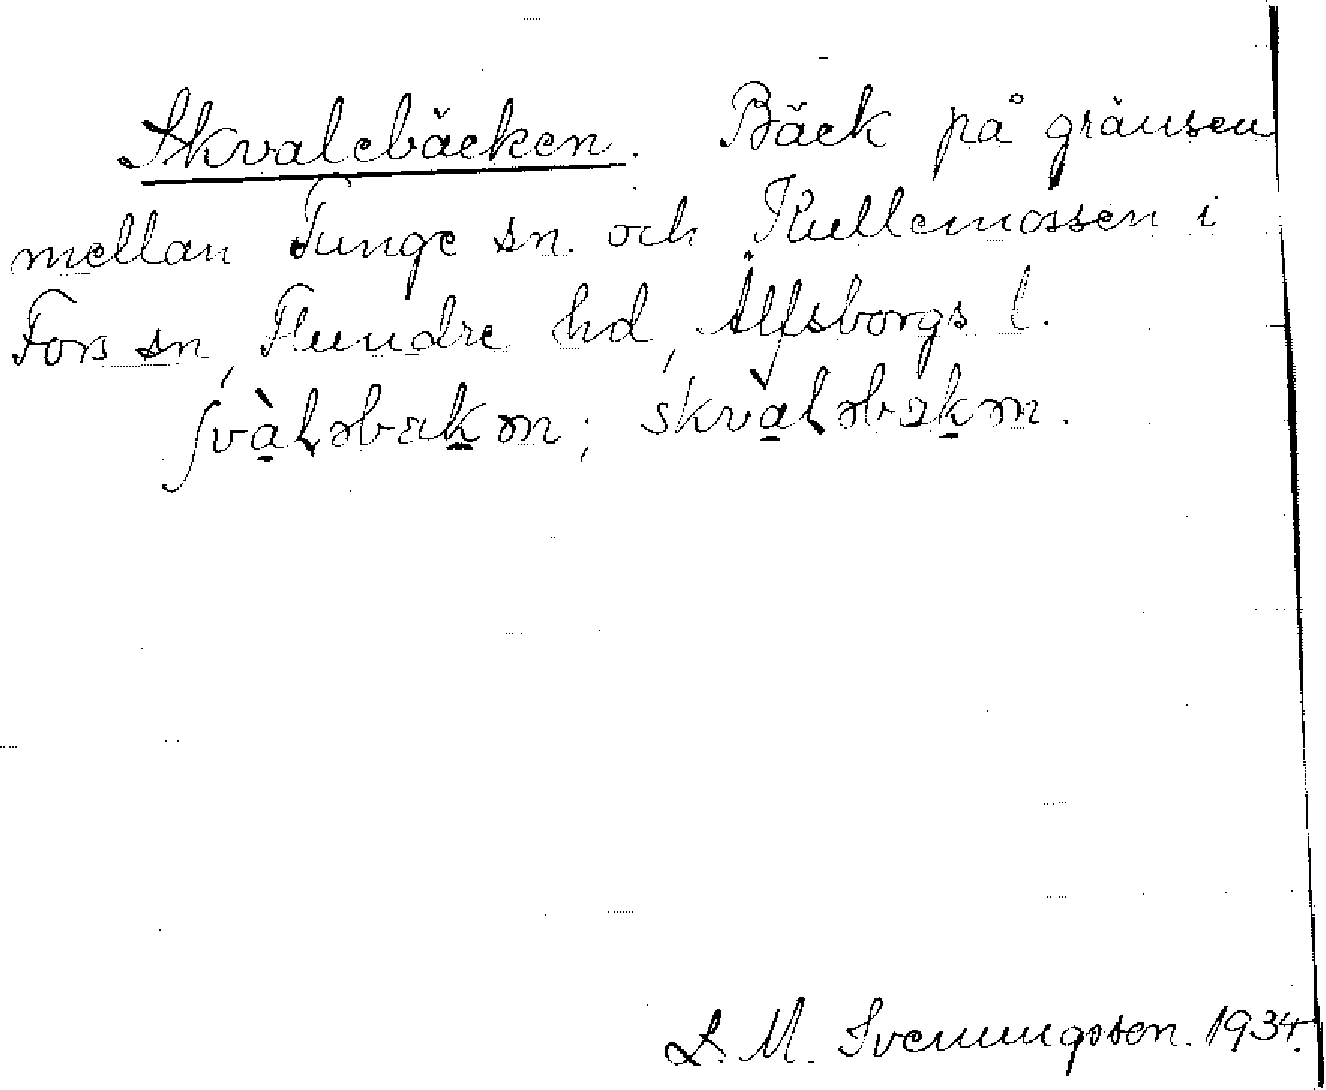 Skvalebäcken. Bäck på gränsen
mellan Tunge sn. och Kullemossen i
Fors sn, Flundre hd, Älfsborgs l.
ʃvàləbækən; skvàləbækən.
L. M. Svenungsson. 1934.